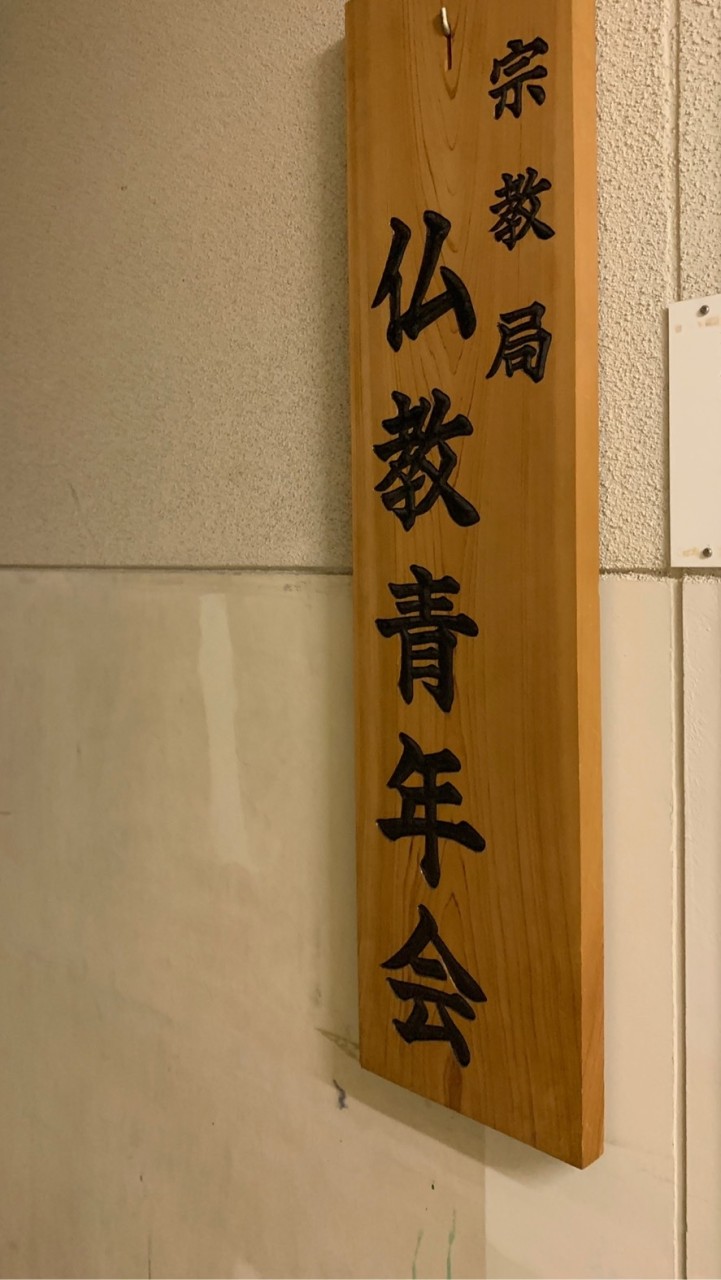 宗教局
仏教青年会